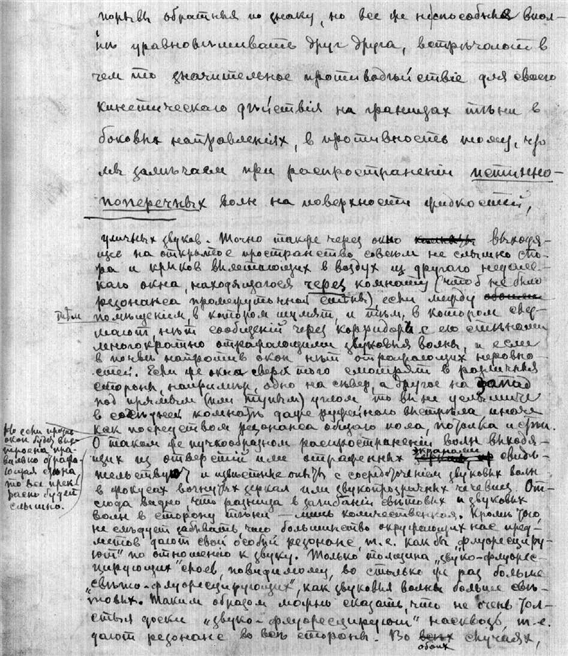 порывы обратные по знаку, но все же неспособные впол-
нѣ уравновѣшивать друг друга, встрѣчают в
чем то значительное противодѣйствіе для своего
кинетическаго дѣйствія на границах тѣни в
боковых направленіях, в противность тому, что
мы замѣчаем при распространеніи истинно-
поперечных волн на поверхности жидкостей,
уличных звуков. Точно также через окно выходя-
щие на открытое пространство совсѣм не слышно
и криков вылетающих в воздух из другого недале-
каго окна, находящагося через комнату (чтоб не было
резонанса промежуточная стѣна) если между
помѣщением в котором шумят и тѣм, в котором
нѣт сообщеній через корридоръ с его стѣнами
многократно отражающими звуковыя волны, и если
в почвы напротив окон нѣт отражающих неровно-
стей. Если же окна сверх того смотрят в различныя
стороны, напримѣр, одно на сѣвер, а другое на запад
под прямым (или тупым) углом то вы не услышите
в сосѣдней комнатѣ даже ружейного выстрѣла иначе
как посредством резонанса общаго пола, потолка и стѣн.
О таком же пучкообразном распространеніи волн выходя-
щих из отверстій или отраженных экранами свидѣ-
тельствуют и извѣстные опыты с сосредоточеніем звуковых волн
в фокусах вогнутых зеркал или звукопрозрачных чечевиц. От-
сюда видно что разница в загибаніи свѣтовых и звуковых
волн в сторону тѣни — лишь количественная. Кромѣ того
не слѣдует забывать, что большинство окружающих нас пред-
метов дают свой особый резонанс, т.е. как бы "флуоресциру-
ют" по отношению к звуку. Только толщина "звуко-флуорес-
цирующих" слоев, повидимому, во столько же раз больше
"свѣто-флуоресцирующих", как звуковыя волны больше свѣ-
товых. Таким образом можно сказать, что не очень тол-
стыя доски "звуко-флуоресцируют" насквозь, т.е.
дают резонанс во всѣ стороны. Во обоих случаях,
Но если против
окон будет
то все прек-
расно будет
слышно.